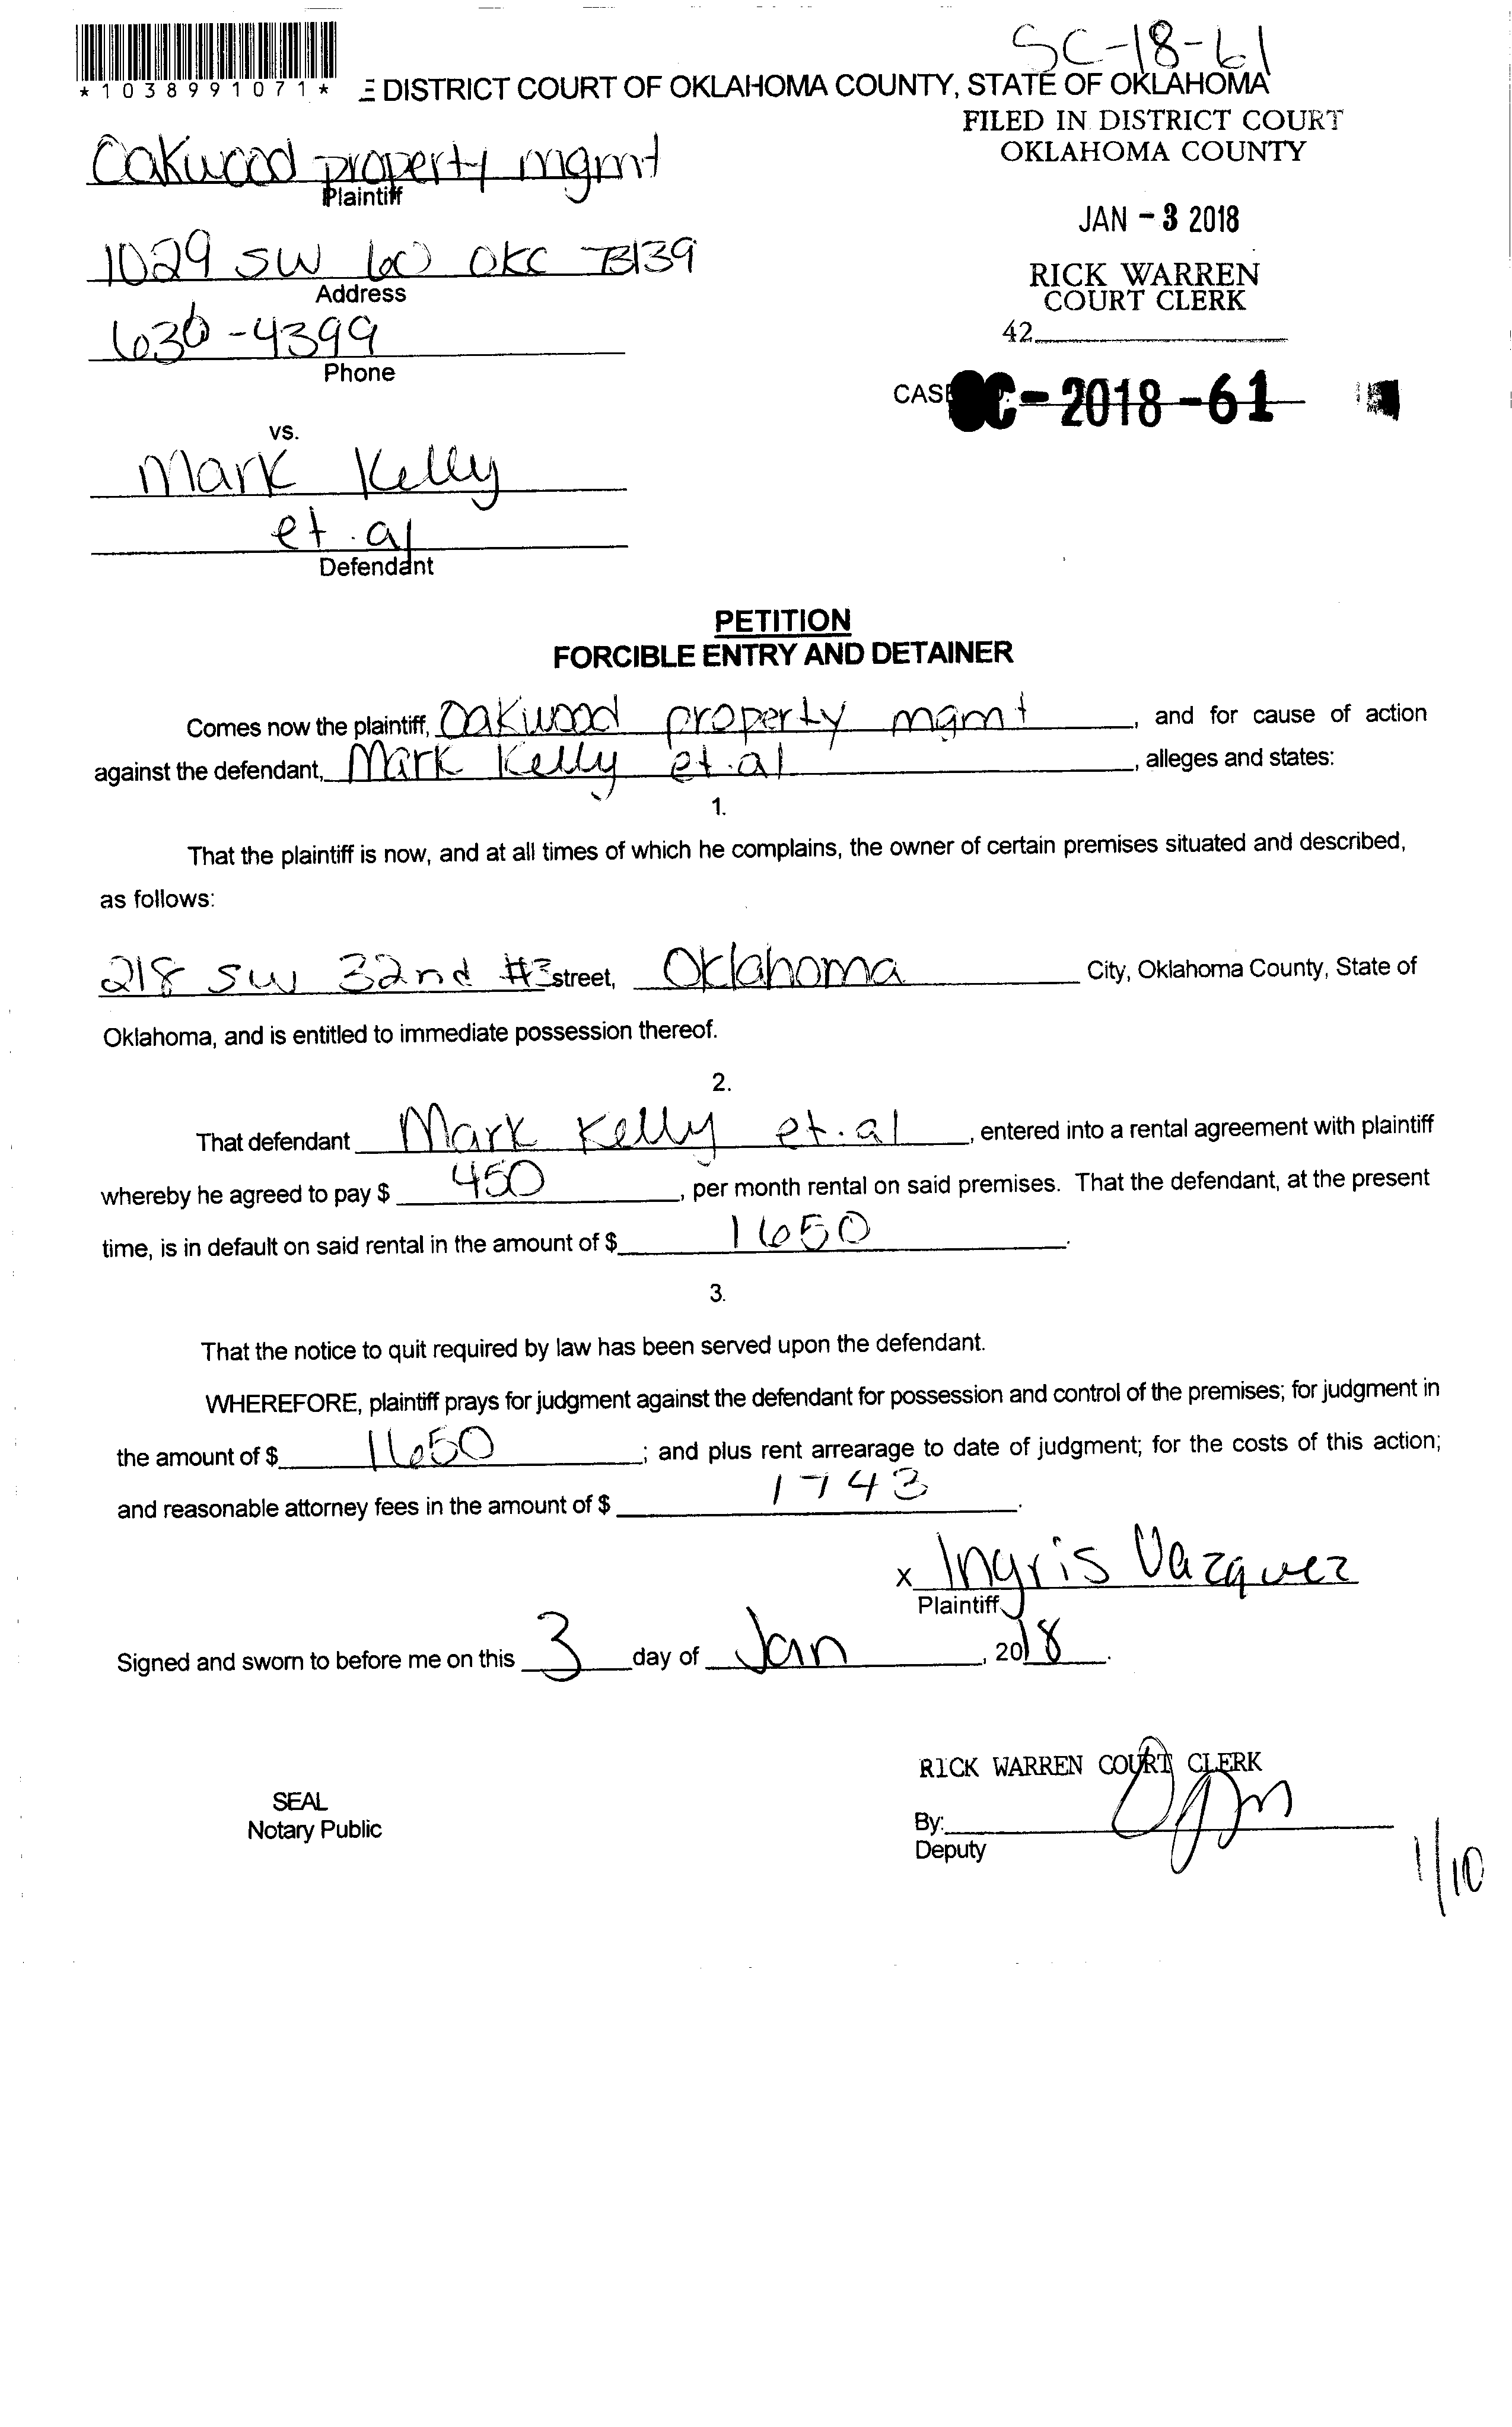 SC-18-61
*1038991071*
E DISTRICT COURT OF OKLAHOMA COUNTY, STATE OF OKLAHOMA
FILED IN DISTRICT COURT
OKLAHOMA COUNTY
Oakwood property mgmt
Plaintiff
JAN - 3 2018
1029 SW 60 OKC 73139
Address
RICK WARREN
COURT CLERK
636-4399
Phone
42
CASE C-2018-61
vs.
Mark Kelly
et.al
Defendant
PETITION
FORCIBLE ENTRY AND DETAINER
Comes now the plaintiff, Oakwood property mgmt, and for cause of action
against the defendant, Mark Kelly et.al, alleges and states:
1.
That the plaintiff is now, and at all times of which he complains, the owner of certain premises situated and described,
as follows:
218 SW 32nd #3 street, Oklahoma City, Oklahoma County, State of
Oklahoma, and is entitled to immediate possession thereof.
2.
That defendant Mark Kelly et.al, entered into a rental agreement with plaintiff
whereby he agreed to pay $ 450, per month rental on said premises. That the defendant, at the present
time, is in default on said rental in the amount of $ 1650.
3.
That the notice to quit required by law has been served upon the defendant.
WHEREFORE, plaintiff prays for judgment against the defendant for possession and control of the premises; for judgment in
the amount of $ 1650; and plus rent arrearage to date of judgment; for the costs of this action;
and reasonable attorney fees in the amount of $ 1743.
x Ingris Vazquez
Plaintiff
Signed and sworn to before me on this 3 day of Jan, 2018.
RICK WARREN COURT CLERK
SEAL
Notary Public
By:
Deputy
1/10